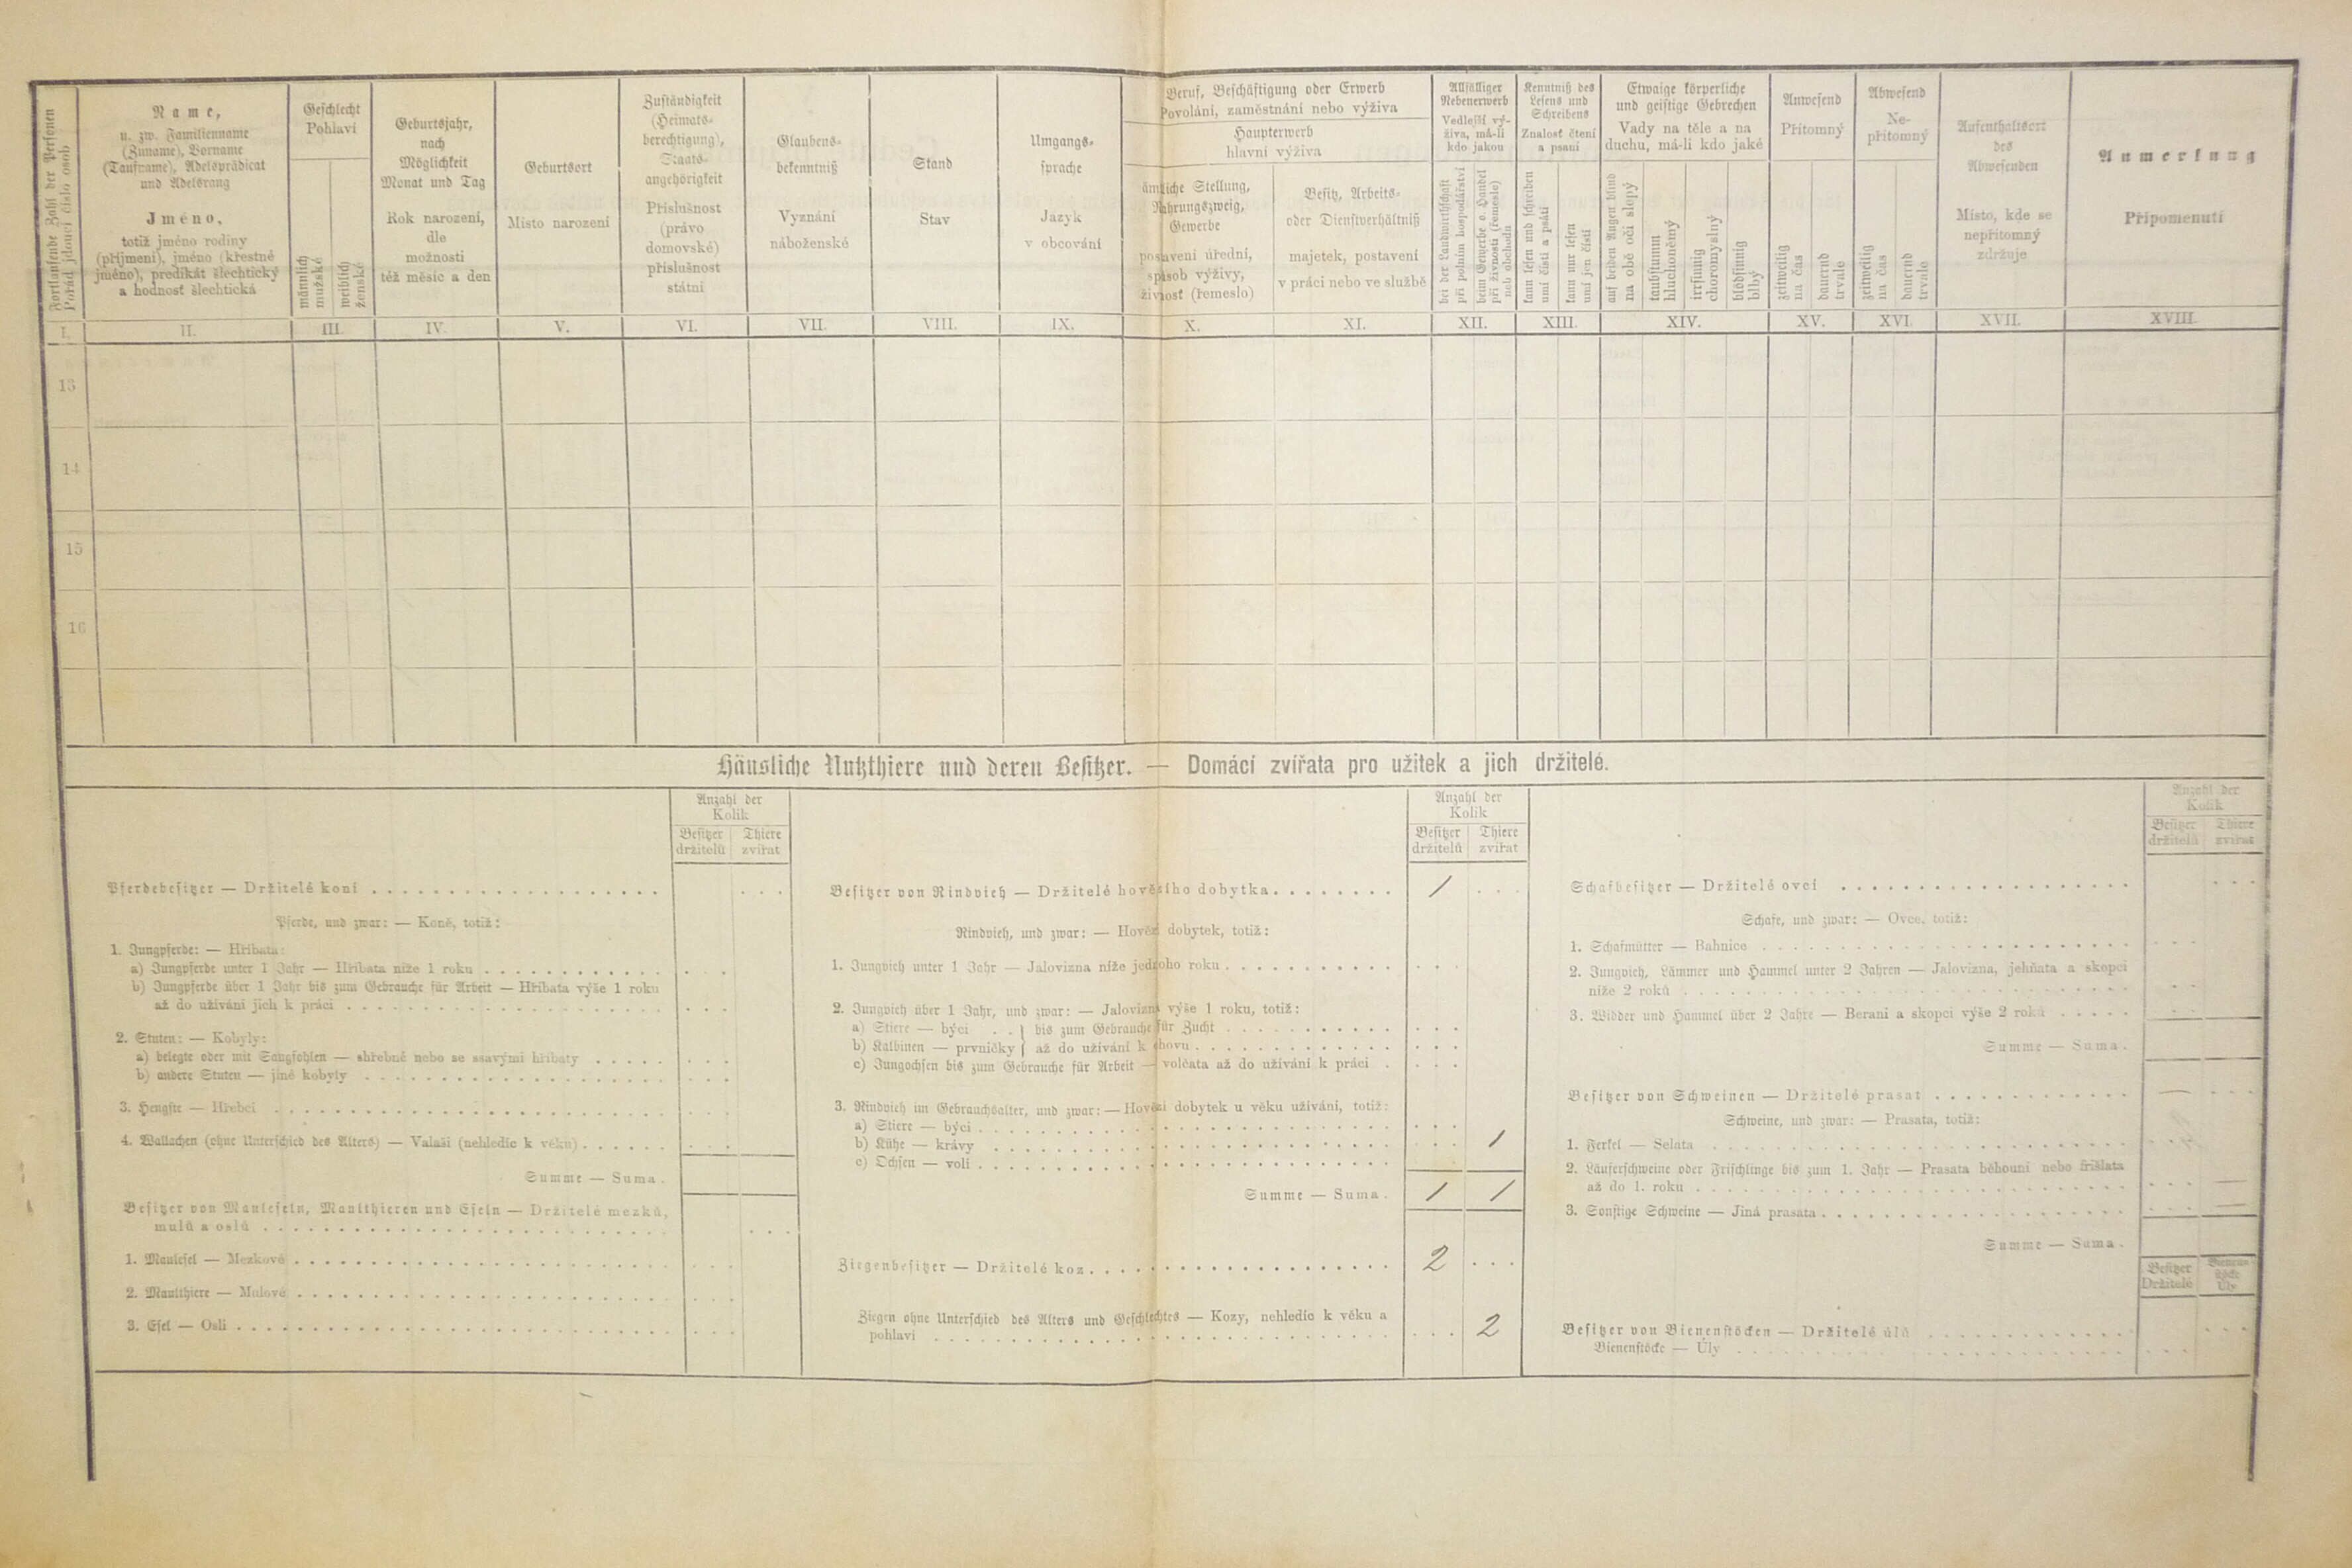 Fortlaufende Zahl der Personen
Pořád jdoucí číslo osob
Name,
u. zw. Familienname
(Zuname), Vorname
(Taufname), Adelsprädicat
und Adelsrang
Jméno,
totiž jméno rodiny
(příjmení), jméno (křestné
jméno), predikát šlechtický
a hodnost šlechtická
Geschlecht
Pohlaví
männlich
mužské
weiblich
ženské
Geburtsjahr,
nach
Möglichkeit
Monat und Tag
Rok narození,
dle
možnosti
též měsíc a den
Geburtsort
Místo narození
Zuständigkeit
(Heimats-
berechtigung),
Staats-
angehörigkeit
Příslušnost
(právo
domovské)
příslušnost
státní
Glaubens-
bekenntniß
Vyznání
náboženské
Stand
Stav
Umgangs-
sprache
Jazyk
v obcování
Beruf, Beschäftigung oder Erwerb
Povolání, zaměstnání nebo výživa
Haupterwerb
hlavní výživa
ämtliche Stellung,
Nahrungszweig,
Gewerbe
postavení úřední,
spůsob výživy,
živnost (řemeslo)
Besitz, Arbeits-
oder Dienstverhältniß
majetek, postavení
v práci nebo ve službě
Allfälliger
Nebenerwerb
Vedlejší vý-
živa, má-li
kdo jakou
bei der Landwirthschaft
při polním hospodářství
beim Gewerbe o. Handel
při živnosti (řemesle)
neb obchodu
Kenntniß des
Lesens und
Schreibens
Znalost čtení
a psaní
kann lesen und schreiben
umí čísti a psáti
kann nur lesen
umí jen čísti
Etwaige körperliche
und geistige Gebrechen
Vady na těle a na
duchu, má-li kdo jaké
auf beiden Augen blind
na obě oči slepý
taubstumm
hluchoněmý
irrsinnig
choromyslný
blödsinnig
blbý
Anwesend
Přítomný
zeitweilig
na čas
dauernd
trvale
Abwesend
Ne-
přítomný
zeitweilig
na čas
dauernd
trvale
Aufenthaltsort
des
Abwesenden
Místo, kde se
nepřítomný
zdržuje
Anmerkung
Připomenutí
I. II. III. IV. V. VI. VII. VIII. IX. X. XI. XII. XIII. XIV. XV. XVI. XVII. XVIII.
13
14
15
16
Häusliche Nutzthiere und deren Besitzer. — Domácí zvířata pro užitek a jich držitelé.
Anzahl der
Kolik
Besitzer
držitelů
Thiere
zvířat
Pferdebesitzer — Držitelé koní
Pferde, und zwar: — Koně, totiž:
1. Jungpferde: — Hříbata:
a) Jungpferde unter 1 Jahr — Hříbata níže 1 roku
b) Jungpferde über 1 Jahr bis zum Gebrauche für Arbeit — Hříbata výše 1 roku
až do užívání jich k práci
2. Stuten: — Kobyly:
a) belegte oder mit Saugfohlen — shřebné nebo se ssavými hříbaty
b) andere Stuten — jiné kobyly
3. Hengste — Hřebci
4. Wallachen (ohne Unterschied des Alters) — Valaši (nehledíc k věku)
Summe — Suma.
Besitzer von Mauleseln, Maulthieren und Eseln — Držitelé mezků,
mulů a oslů
1. Maulesel — Mezkové
2. Maulthiere — Mulové
3. Esel — Osli
Anzahl der
Kolik
Besitzer
držitelů
Thiere
zvířat
Besitzer von Rindvieh — Držitelé hovězího dobytka 1
Rindvieh, und zwar: — Hovězí dobytek, totiž:
1. Jungvieh unter 1 Jahr — Jalovizna níže jednoho roku
2. Jungvieh über 1 Jahr, und zwar: — Jalovizna výše 1 roku, totiž:
a) Stiere — býci } bis zum Gebrauche für Zucht
b) Kalbinen — prvničky } až do užívání k chovu
c) Jungochsen bis zum Gebrauche für Arbeit — volčata až do užívání k práci
3. Rindvieh im Gebrauchsalter, und zwar: — Hovězí dobytek u věku užívání, totiž:
a) Stiere — býci
b) Kühe — krávy 1
c) Ochsen — voli
Summe — Suma. 1 1
Ziegenbesitzer — Držitelé koz 2
Ziegen ohne Unterschied des Alters und Geschlechtes — Kozy, nehledíc k věku a
pohlaví 2
Anzahl der
Kolik
Besitzer
držitelů
Thiere
zvířat
Schafbesitzer — Držitelé ovcí
Schafe, und zwar: — Ovce, totiž:
1. Schafmütter — Bahnice
2. Jungvieh, Lämmer und Hammel unter 2 Jahren — Jalovizna, jehňata a skopci
níže 2 roků
3. Widder und Hammel über 2 Jahre — Berani a skopci výše 2 roků
Summe — Suma.
Besitzer von Schweinen — Držitelé prasat —
Schweine, und zwar: — Prasata, totiž:
1. Ferkel — Selata
2. Läuferschweine oder Frischlinge bis zum 1. Jahr — Prasata běhouni nebo frišlata
až do 1. roku —
3. Sonstige Schweine — Jiná prasata —
Summe — Suma.
Besitzer
Držitelé
Bienen-
stöcke
Úly
Besitzer von Bienenstöcken — Držitelé úlů
Bienenstöcke — Úly